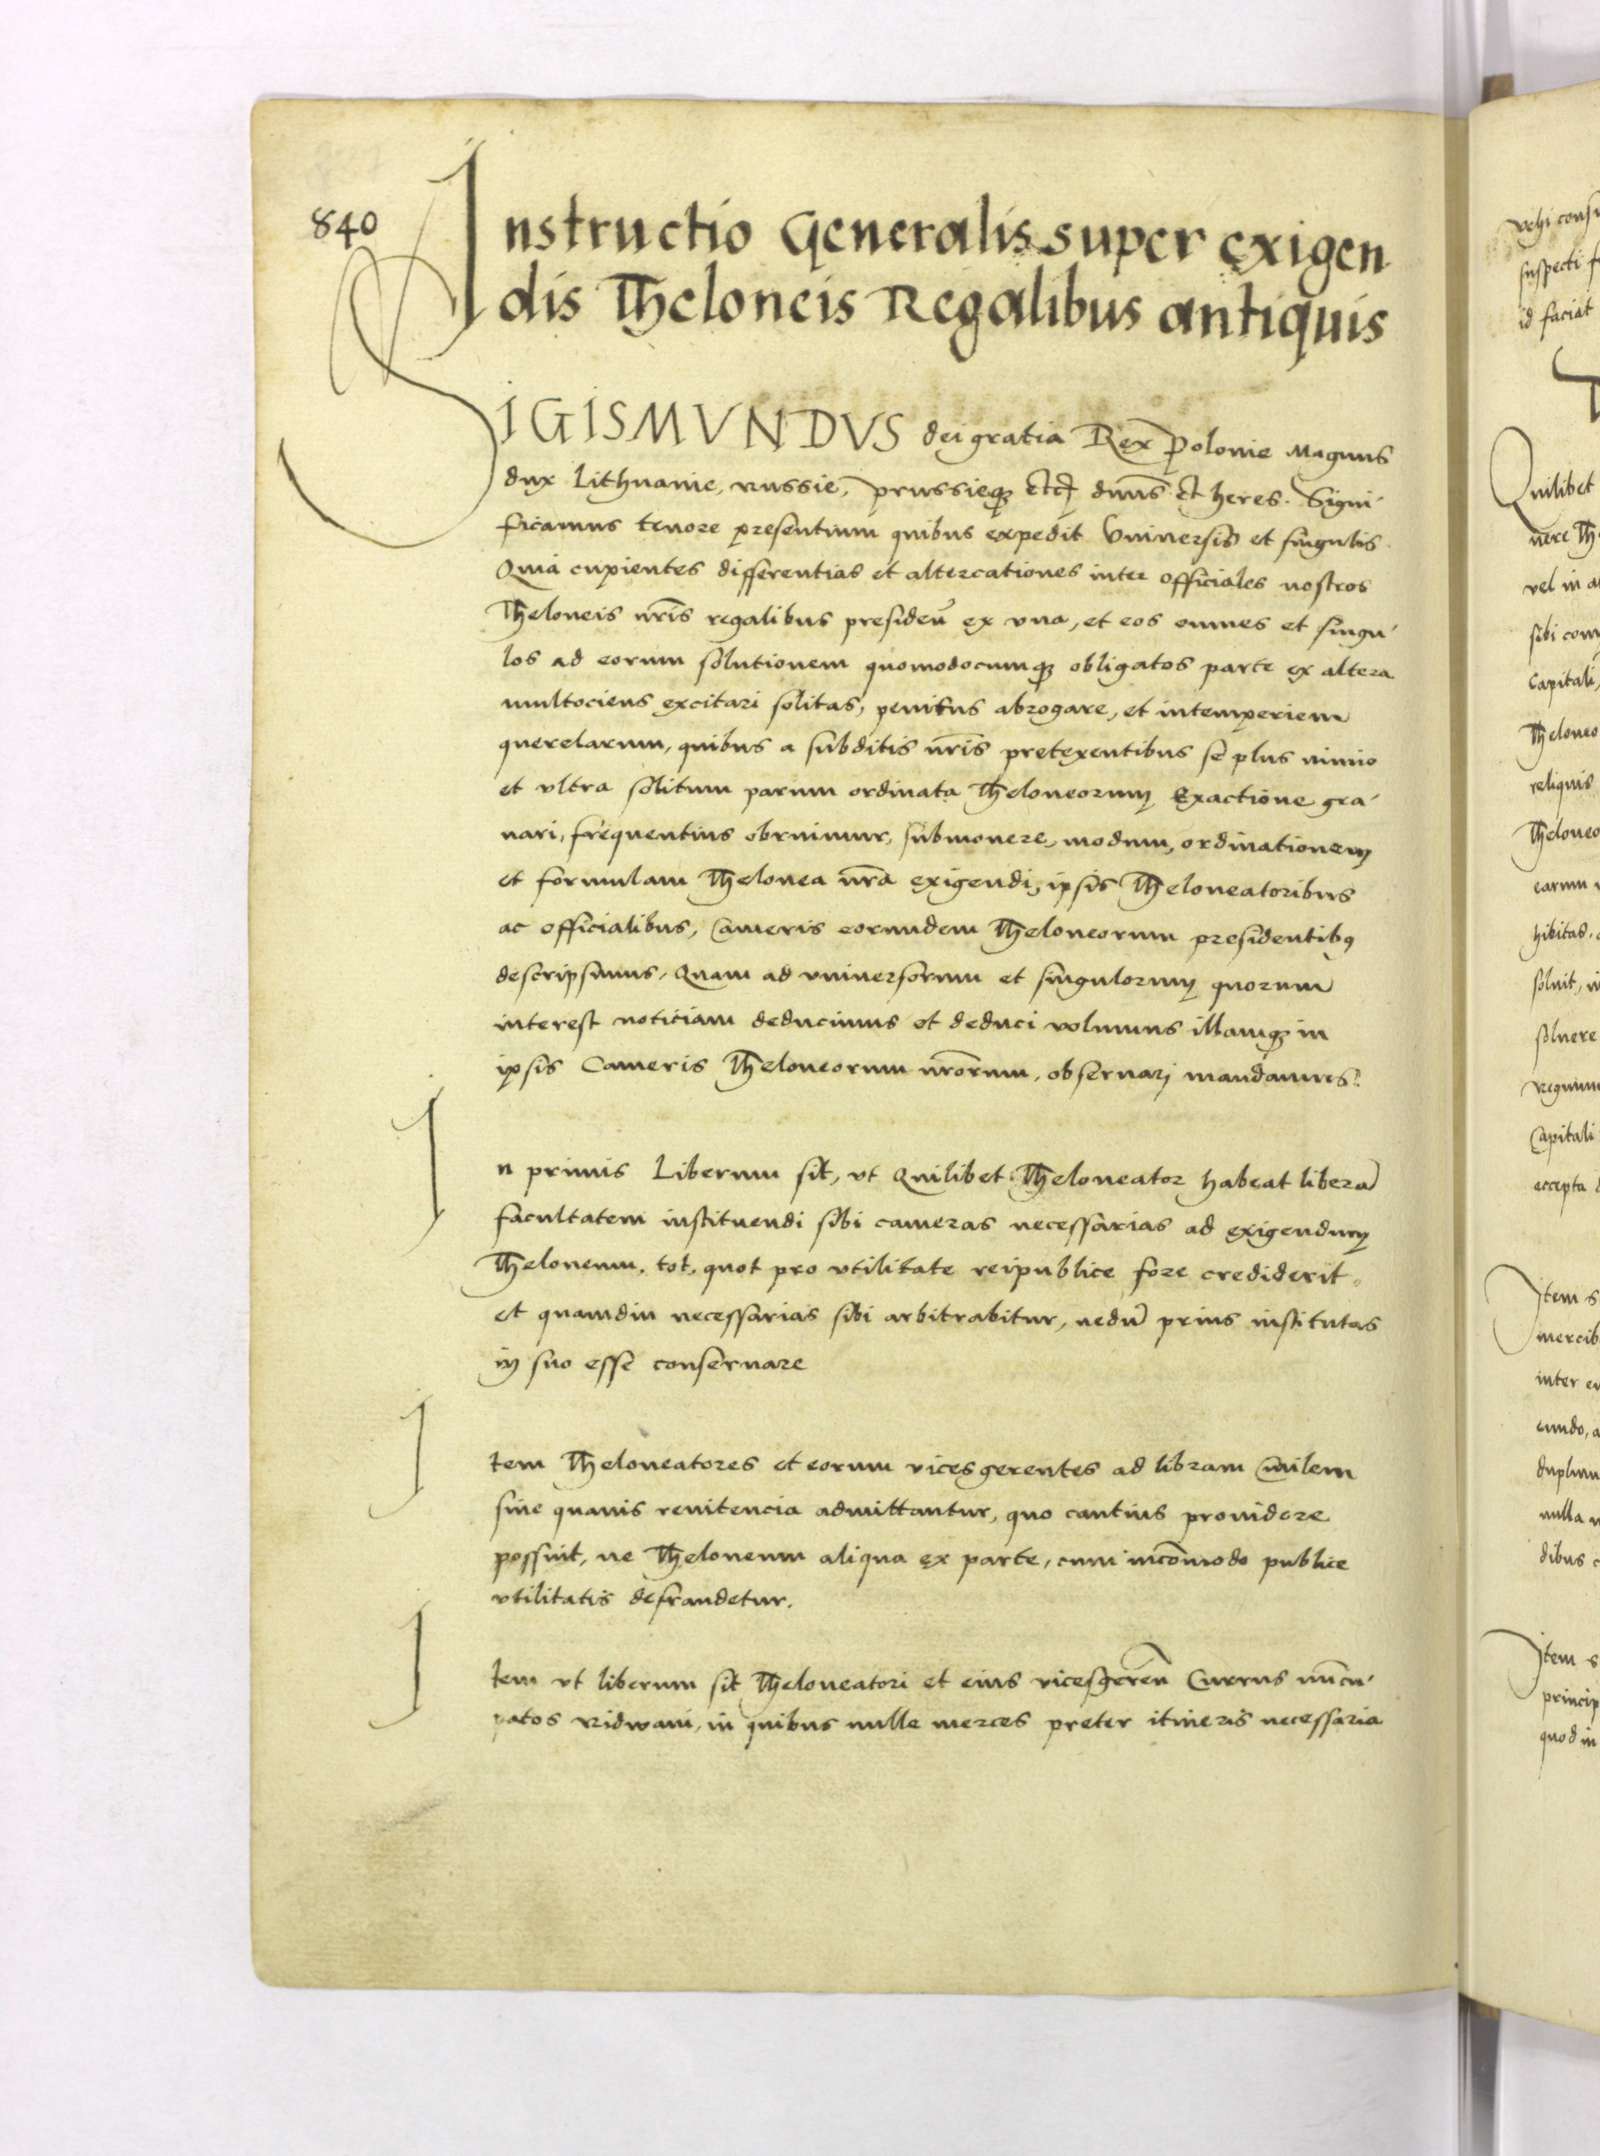 840
Instructio Generalis super exigen
dis Theloneis Regalibus antiquis
SIGISMVNDVS dei gratia Rex Polonie Magnus
dux Lithuanie, Russie, prussieq3 etc dnns et heres. Signi-
ficamus tenore presentium quibus expedit Vniuersis et singulis.
Quia cupientes differentias et altercationes inter officiales nostros
Theloneis nris regalibus presiden ex vna, et eos omnes et singu-
los ad eorum solutionem quomodocumq3 obligatos parte ex altera
multociens excitari solitas, penitus abrogare, et intemperiem
querelarum, quibus a subditis nris pretexentibus se plus nimio
et vltra solitum parum ordinata Theloneorum Exactione gra-
uari, frequentius obruimur, submouere, modum, ordinationem
et formulam Thelonea nra exigendi, ipsis Theloneatoribus
ac officialibus, Cameris eorundem Theloneorum presidentib9
descripsimus, Quam ad vniuersorum et singulorum quorum
interest noticiam deducimus et deduci volumus illamq3 in
ipsis Cameris Theloneorum nrorum, obseruari mandamus.
In primis Liberum sit, vt Quilibet Theloneator habeat liberā
facultatem instituendi sibi cameras necessarias ad exigendum
Theloneum, tot, quot pro vtilitate reipublice fore crediderit.
et quamdiu necessarias sibi arbitrabitur, nedū prius institutas
in suo esse conseruare
Item Theloneatores et eorum vicesgerentes ad libram Ciuilem
sine quauis renitencia admittantur, quo cautius prouidere
possint, ne Theloneum aliqua ex parte, cum incōmodo publice
vtilitatis defraudetur.
Item vt liberum sit Theloneatori et eius vicesgeren Currus nūcu-
patos Ridwani, in quibus nulle merces preter itineris necessaria
vehi consu
suspecti
id faciat
Quilibet
nere Th
vel in a
sibi com
Capitali,
Theloneo
reliquis
Theloneo
earum
hibitas.
soluit,
soluere
Regnum
Capitali
accepta
Item s
mercib
inter e
eundo, a
duplum
nulla
dibus
Item s
princip
quod in